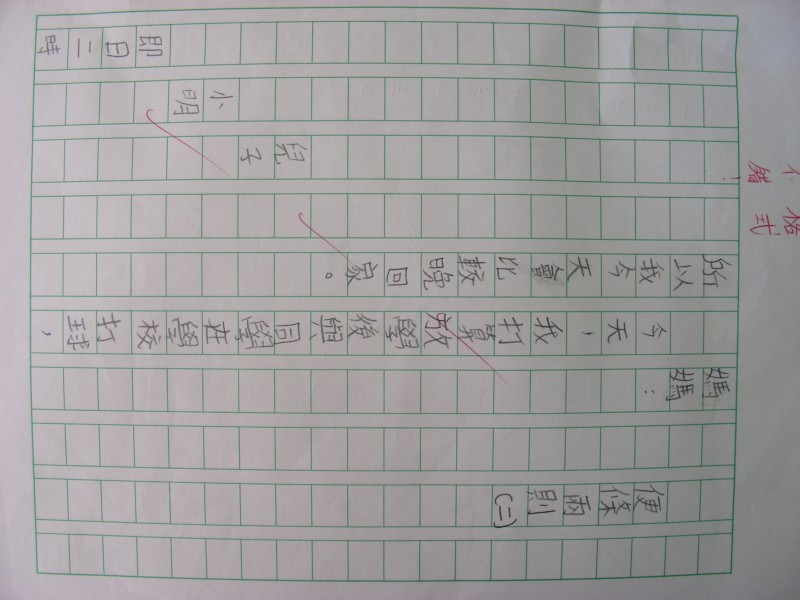 便條兩則(二)
媽媽：
今天，我打算放學後與同學在學校打球，
所以我今天會比較晚回家。
兒子
小明
即日二時
格式
不錯！